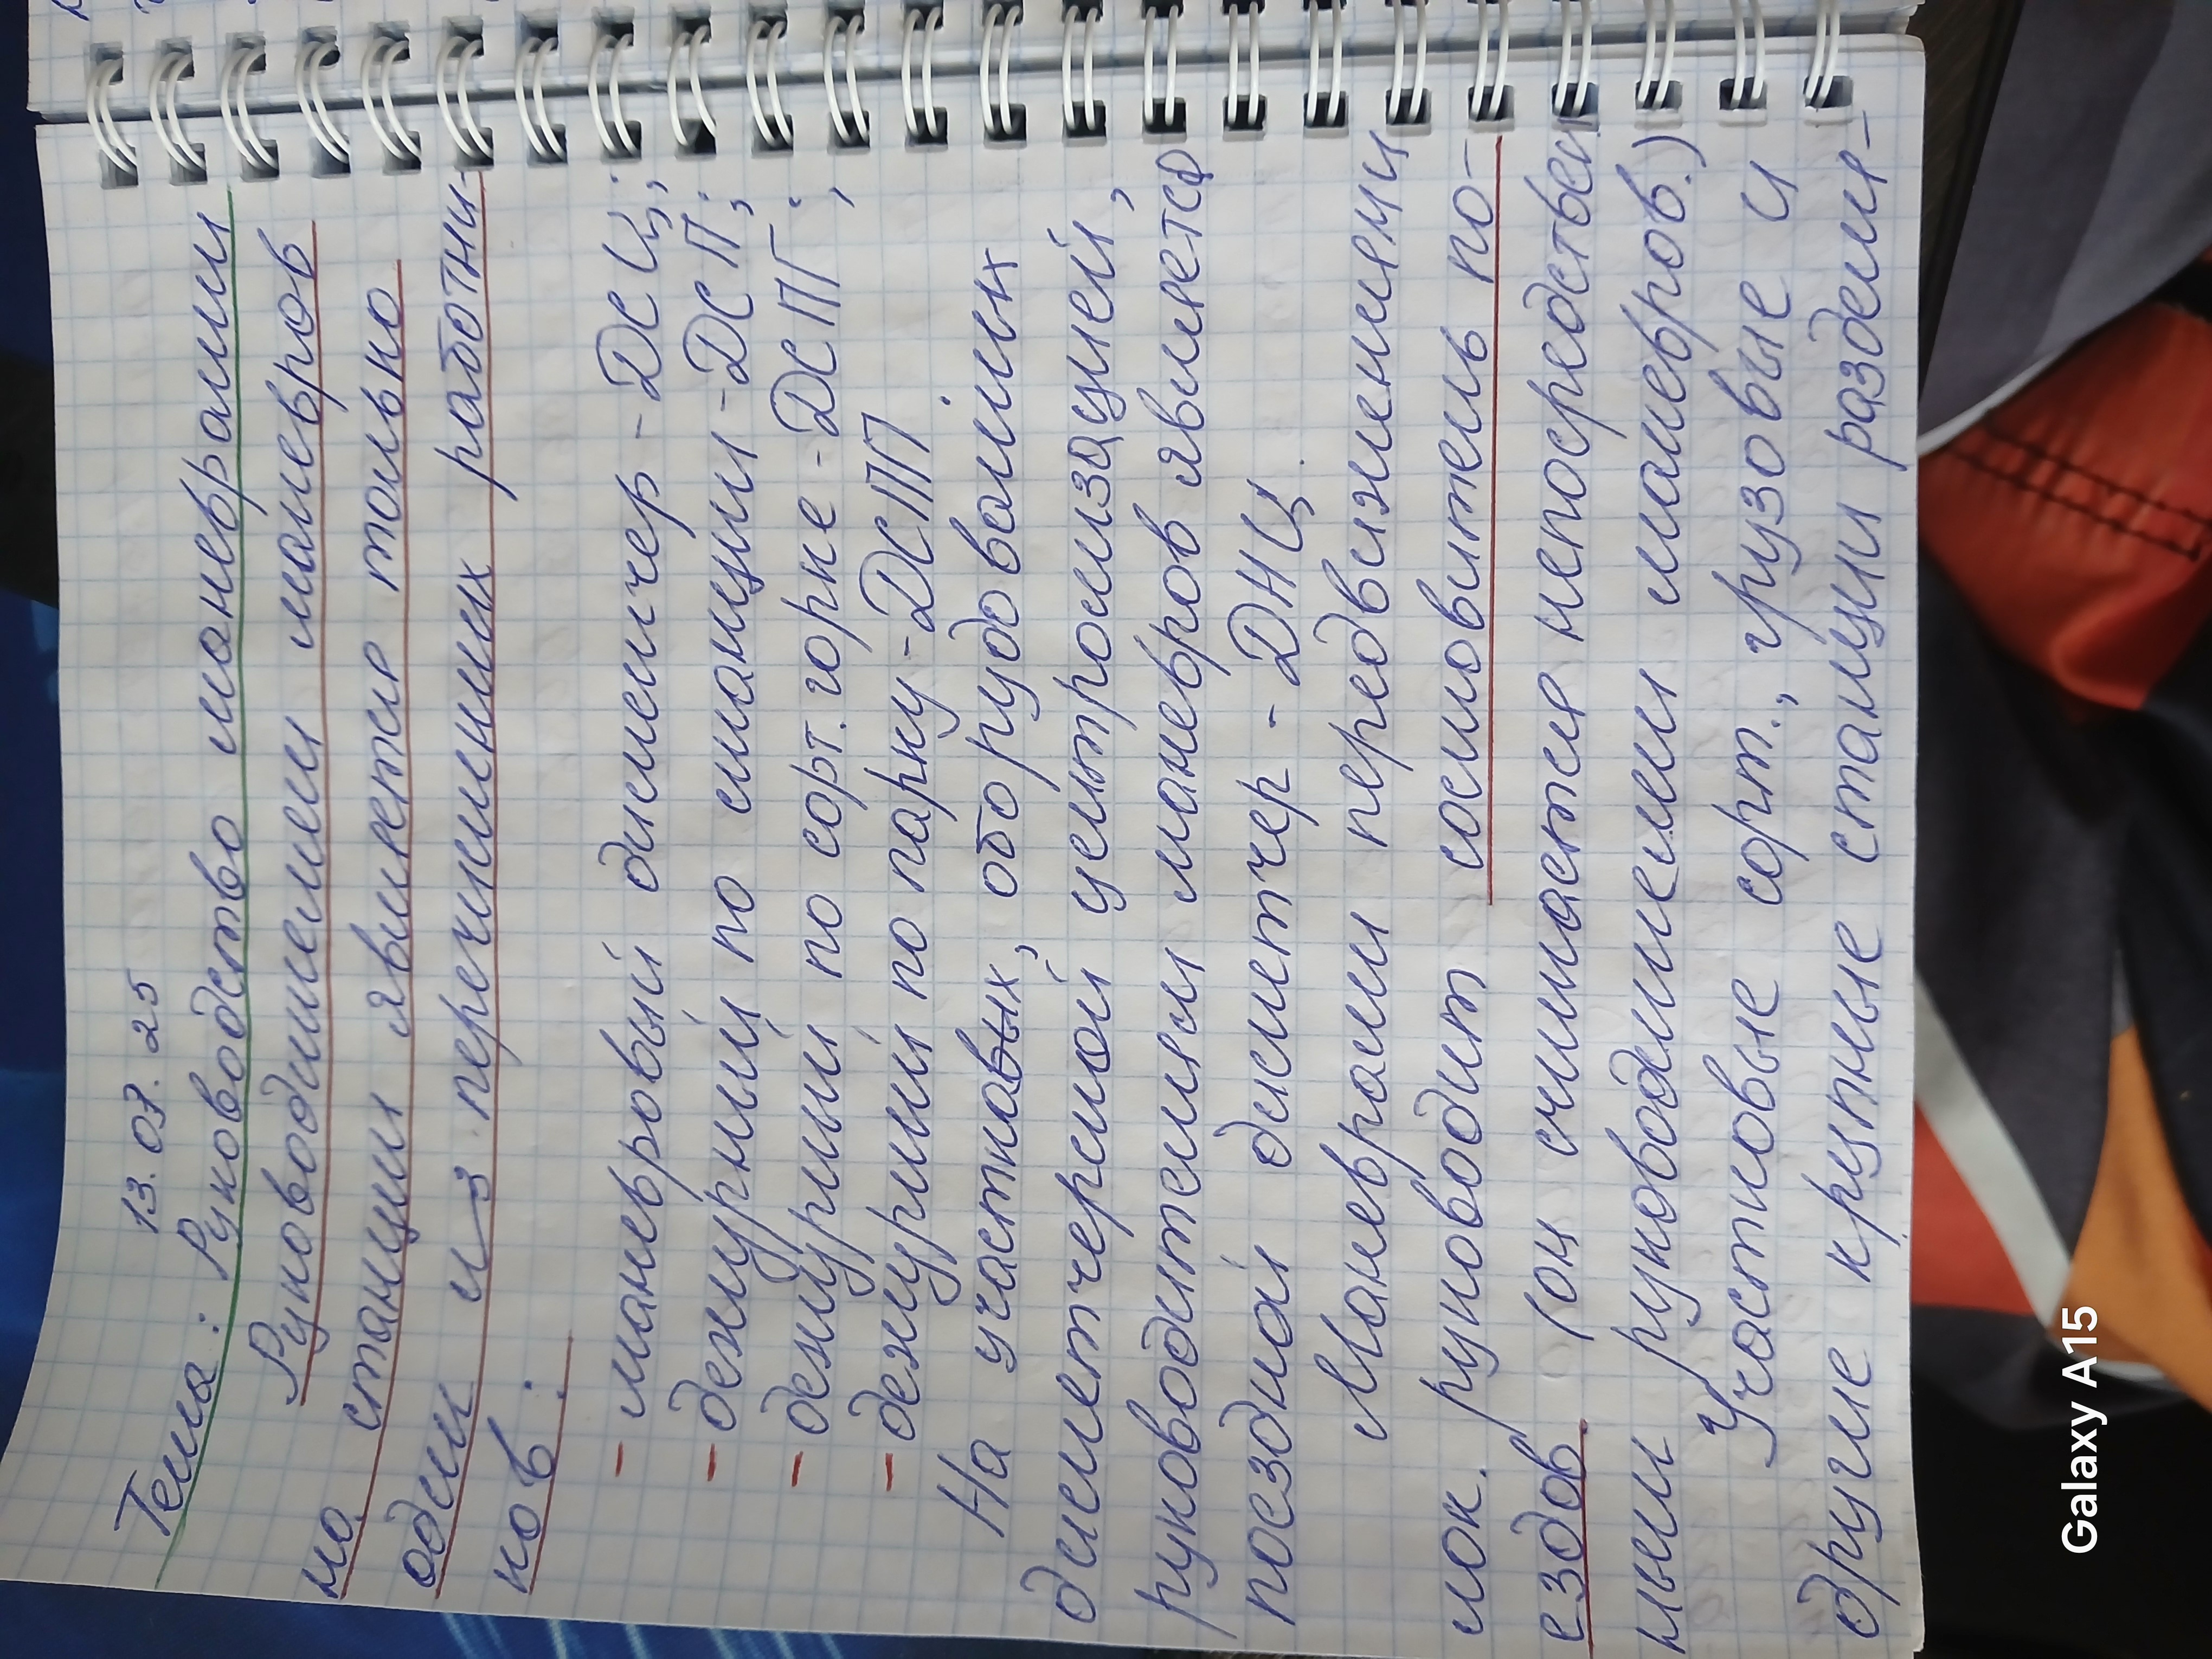 13.03.25
Тема: Руководство маневрами
Руководителем маневров
на станции является только
один из перечисленных работни-
ков:
- маневровый диспетчер - ДСЦ;
- дежурный по станции - ДСП;
- дежурный по сорт. горке - ДСПГ;
- дежурный по парку - ДСПП.
На участках, оборудованных
диспетчерской централизацией,
руководителем маневров является
поездной диспетчер - ДНЦ.
Маневрами передвижениями
лок. руководит составитель по-
ездов. (он считается непосредствен
ным руководителем маневров.)
Участковые сорт., грузовые и
другие крупные станции раздели-
Galaxy A15